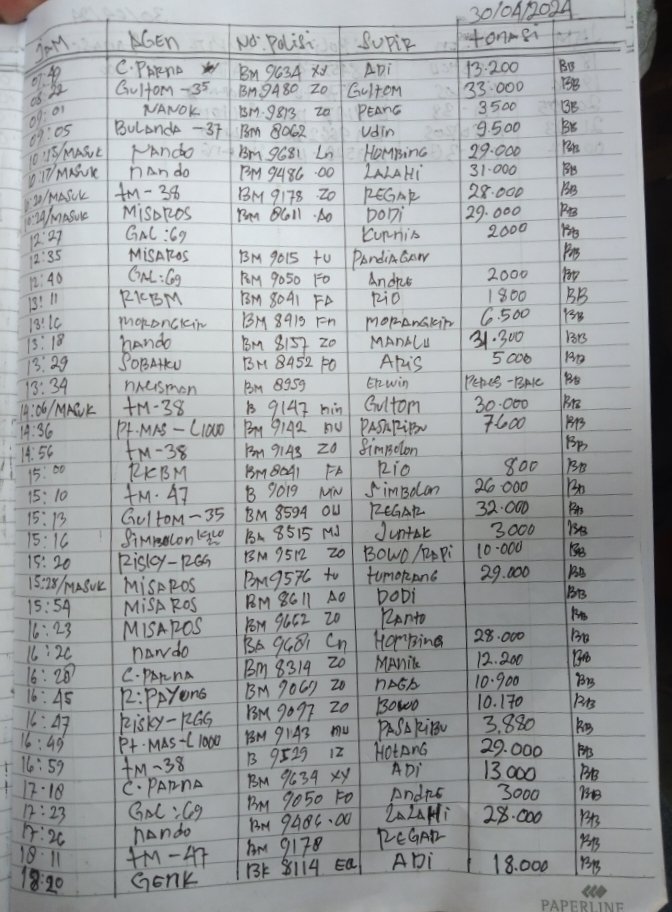 30/04/2024
JAM AGEN NO. POLISI SUPIR tONASI
07:40 C. PARNA BM 9634 XY ADI 13.200 BB
08:22 GultOM - 35 BM.9480 ZO GultOM 33.000 BB
09:01 NANOK BM.9813 ZO PEANG 3500 BB
09:05 Bulanda - 37 BM 8062 Udin 9.500 BB
10:13/MASUK Nando BM 9681 Ln HOMBING 29.000 BB
10:17/MASUK nando BM 9486 .OO LALAHI 31.000 BB
10:20/MASUK tM - 38 BM 9178 .ZO REGAR 28.000 BB
10:20/MASUK MISAROS BM 8611 .AO DODI 29.000 BB
12:27 GAL :69 KURNIA 2000 BB
12:35 MISAROS BM 9015 tU PANDIAGAN BB
12:40 GAL :69 BM 9050 FO Andre 2000 BB
13:11 RKBM BM 8041 FA RIO 1800 BB
13:16 MORANGKIR BM 8419 Fn MORANGKIR 6.500 BB
13:18 nando BM 8157 ZO MANALU 31.300 BB
13:29 SOBATKU BM 8452 FO ARIS 5000 BB
13:34 BM 8959 ERWIN BB
14:06/MASUK tM-38 B 9147 Gultom 30.000 BB
14:36 Pt. MAS - L1000 BM 9142 MU PASARIBU 7.600 BB
14:56 tM-38 BM 9143 ZO Simbolon BB
15:00 RKBM BM 8041 FA RIO 800 BB
15:10 tM. 47 B 9019 MN SimBolon 26.000 BB
15:13 GultOM - 35 BM 8594 OU REGAR 32.000 BB
15:16 SIMBOLON BA 8515 MJ Juntak 3000 BB
15:20 RISKY - RGG BM 9512 ZO BOWO /RAPI 10.000 BB
15:28/MASUK MISAROS BM 9576 tU tUMORANG 29.000 BB
15:54 MISAROS BM 8611 AO DODI BB
16:23 MISAROS BM 9662 ZO RANTO BB
16:26 nando BA 9681 Cn HOMBING 28.000 BB
16:28 C. PARNA BM 8314 ZO MANIK 12.200 BB
16:45 R. PAYUNG BM 9069 ZO NAGA 10.900 BB
16:47 RISKY-RGG BM 9097 ZO BOWO 10.170 BB
16:49 Pt. MAS - L1000 BM 9143 MU PASARIBU 3.880 BB
16:59 tM-38 B 9529 IZ HOTANG 29.000 BB
17.18 C. PARNA BM 9634 XY ADI 13 000 BB
17:23 GAL :69 BM 9050 FO Andre 3000 BB
17:26 nando BM 9486 .OO LALAHI 28.000 BB
18:11 tM-47 BM 9178 REGAR BB
18:20 GENK BK 8114 EQ ADI 18.000 BB
PAPERLINE